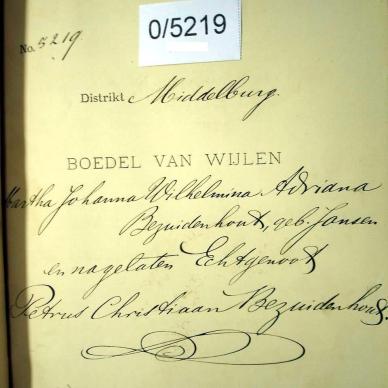 0/5219
No. 5219.
Distrikt Middelburg.
BOEDEL VAN WIJLEN
Martha Johanna Wilhelmina Adriana
Bezuidenhout, geb. Jansen
en nagelaten Echtgenoot
Petrus Christiaan Bezuidenhout.